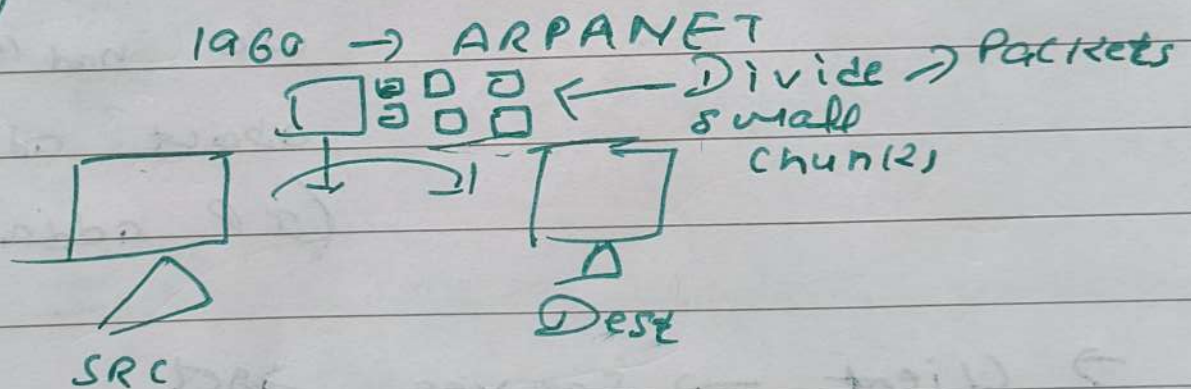 1960 → ARPANET
← Divide → Packets
small
chunks
Dest
SRC